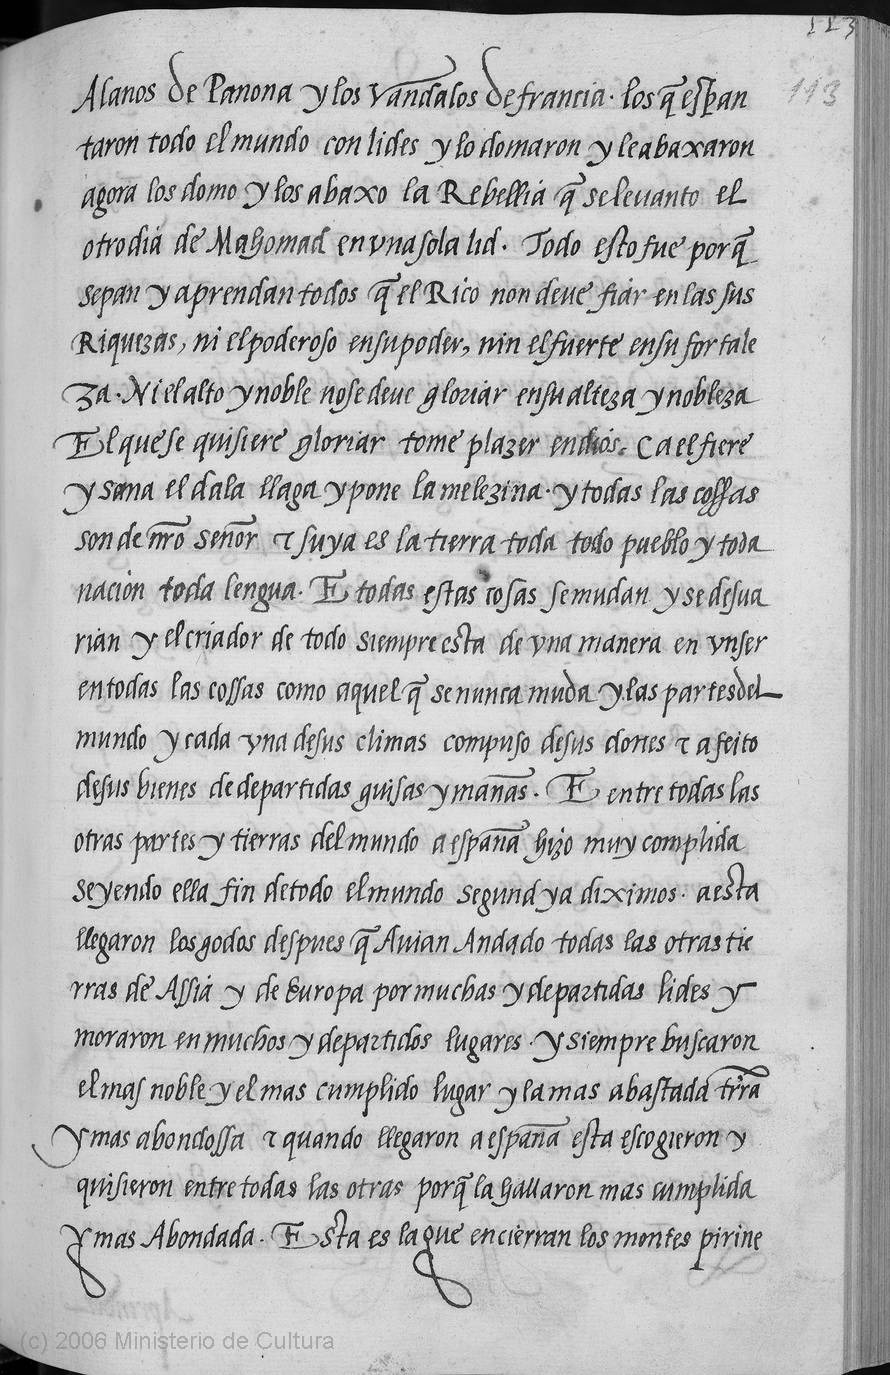 113
113
Alanos de Panona y los vandalos de francia· los q̃ espan
taron todo el mundo con lides y lo domaron y le abaxaron
agora los domo y los abaxo la Rebellia q̃ se leuanto el
otro dia de Mahomad en vna sola lid· Todo esto fue porq̃
sepan y aprendan todos q̃ el Rico non deve fiar en las sus
Riquezas, ni el poderoso en su poder, nin el fuerte en su fortale
za·Ni el alto y noble no se deve gloriar en su alteza y nobleza
El que se quisiere gloriar tome plazer en dios. Ca el fiere
y sana el da la llaga y pone la melezina· y todas las cossas
son de nr̃o señor τ suya es la tierra toda todo pueblo y toda
nacion toda lengua· E todas estas cosas se mudan y se desua
rian y el criador de todo siempre esta de vna manera en vn ser
en todas las cossas como aquel q̃ se nunca muda y las partes del
mundo y cada vna de sus climas compuso de sus dones τ afeito
de sus bienes de departidas guisas y mañas· E entre todas las
otras partes y tierras del mundo a españa hizo muy complida
seyendo ella fin de todo el mundo segund ya diximos· a esta
llegaron los godos despues q̃ Auian Andado todas las otras tie
rras de Assia y de Europa por muchas y departidas lides y
moraron en muchos y departidos lugares· y siempre buscaron
el mas noble y el mas cumplido lugar y la mas abastada tr̃ra
y mas abondossa τ quando llegaron a españa esta escogieron y
quisieron entre todas las otras porq̃ la hallaron mas cumplida
y mas Abondada· Esta es la que encierran los montes pirine
(c) 2006 Ministerio de Cultura